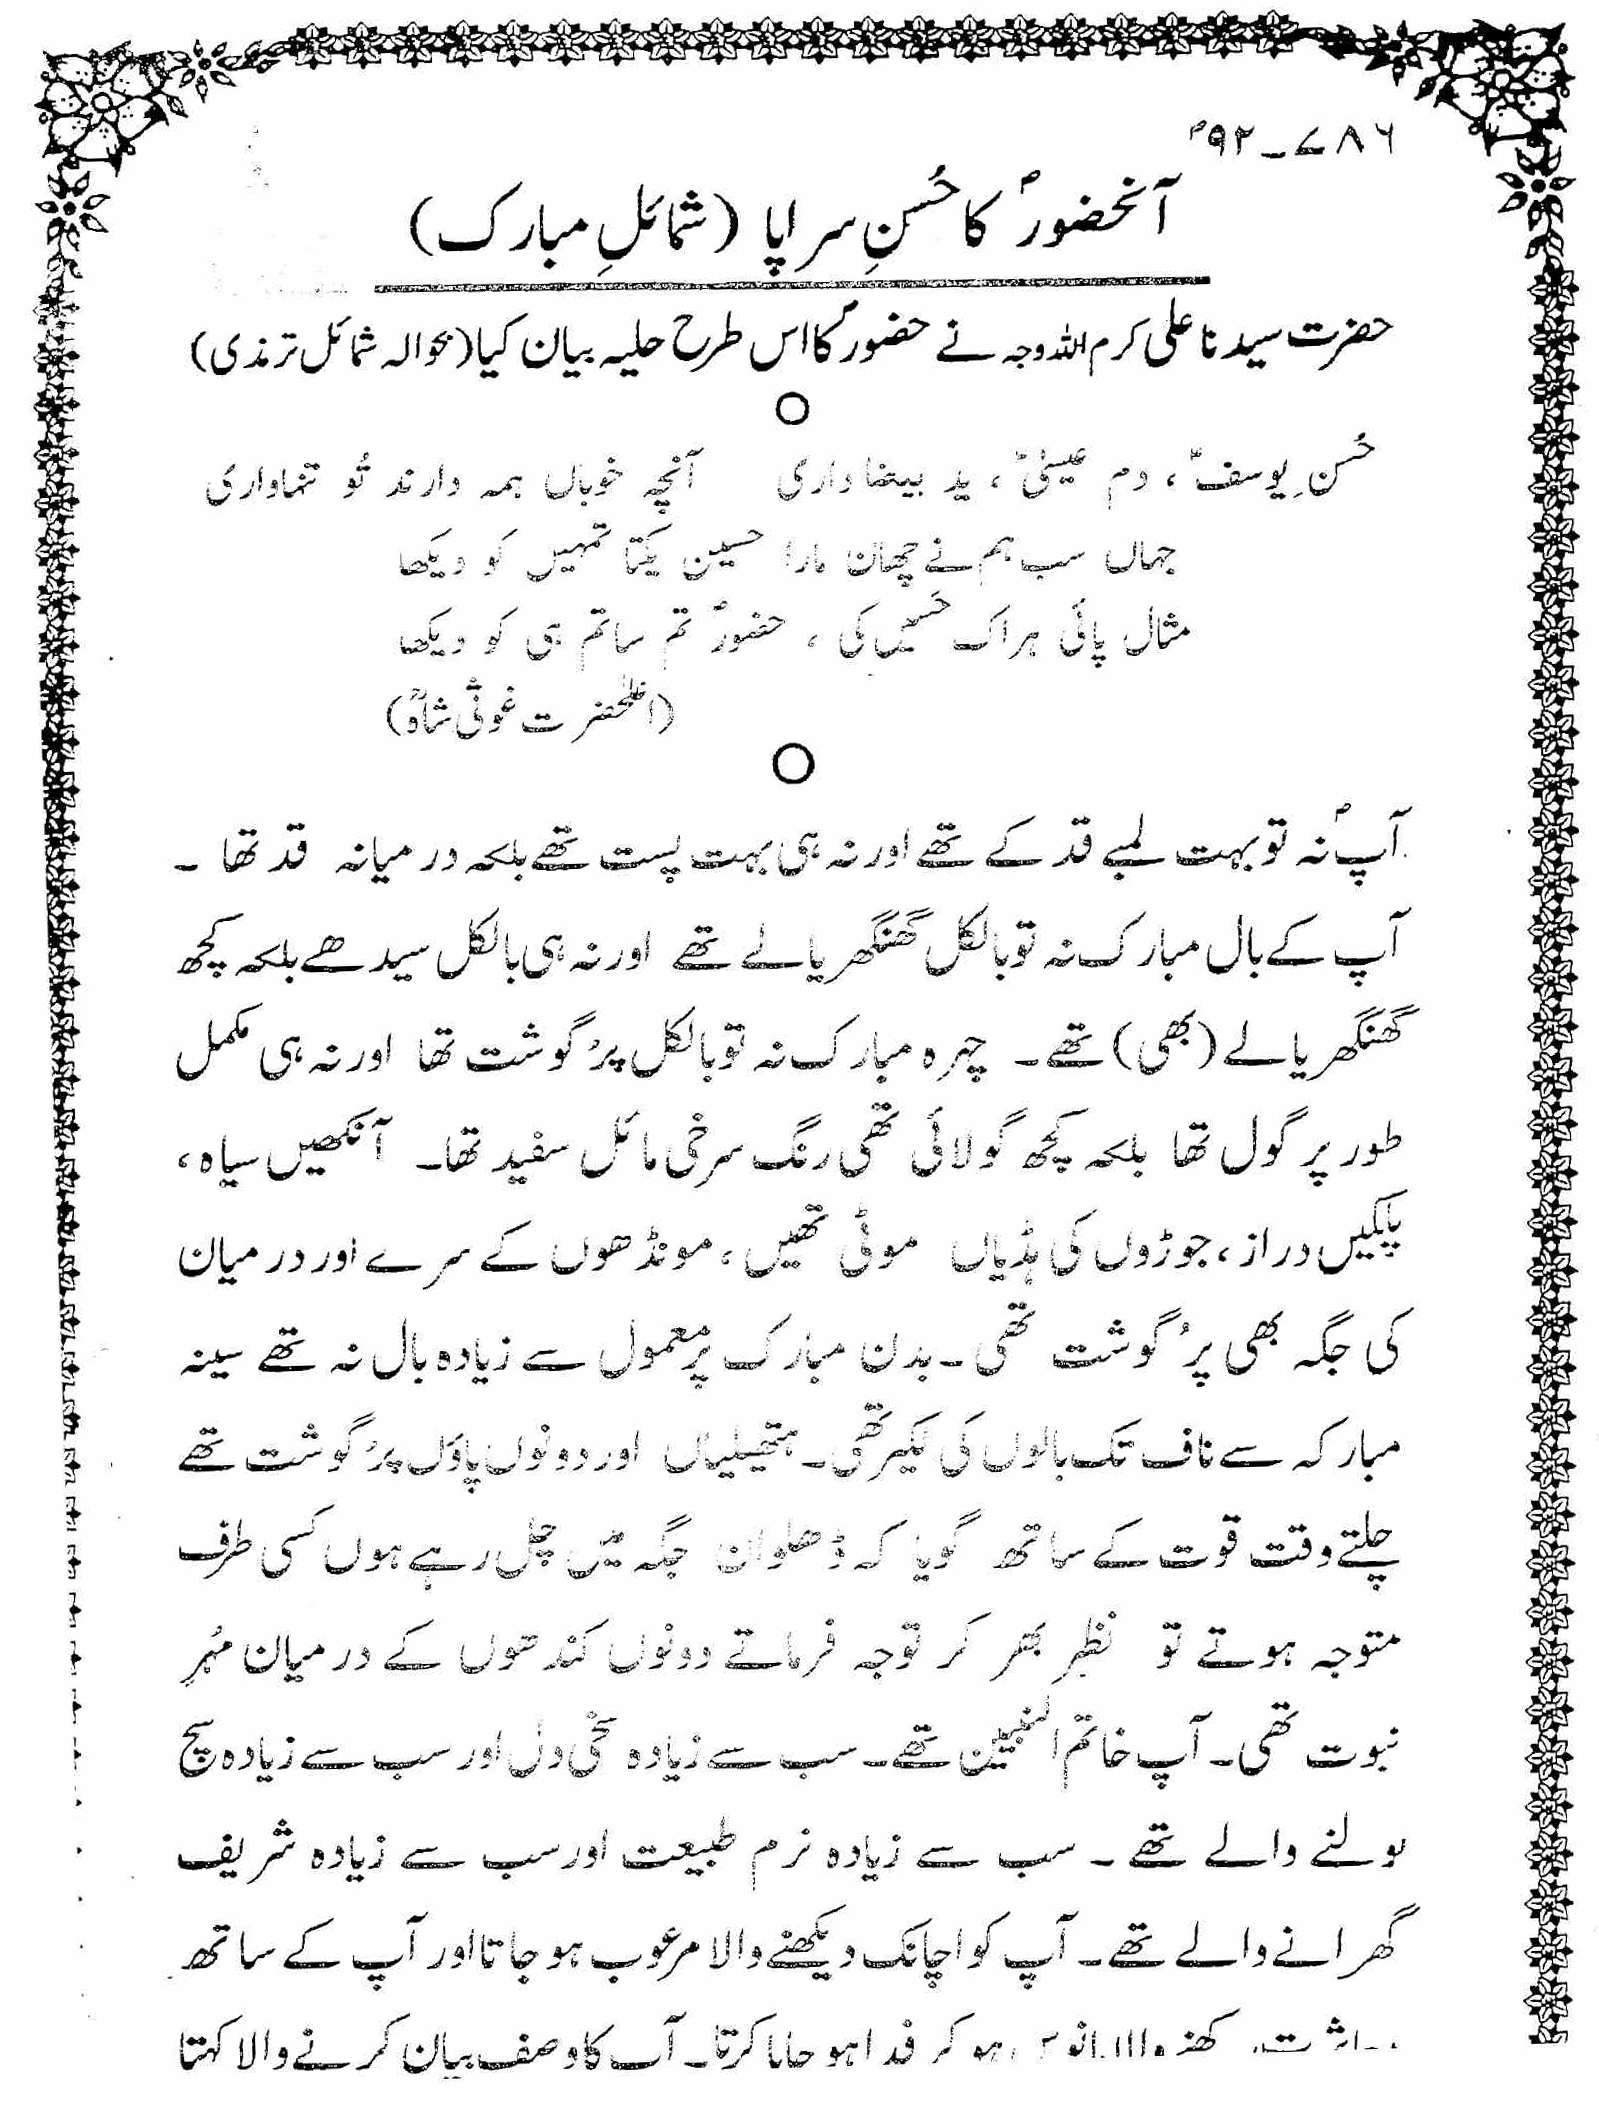 ۷۸۶ــ۹۲ؐ
آنحضورؐ کا حُسنِ سراپا (شمائلِ مبارک)
حضرت سیدنا علی کرم اللہ وجہ نے حضورؐ کا اس طرح حلیہ بیان کیا (بحوالہ شمائل ترمذی)
حُسنِ یوسفؑ ، دم عیسیٰؑ ، ید بیضا داری آنچہ خوباں ہمہ دارند تُو تنہا داری
جہاں سب ہم نے چھان مارا حسین یکتا تمہیں کو دیکھا
مثال پائی ہر اک حَسیں کی ، حضورؐ تم سا تم ہی کو دیکھا
(اعلحٰضرت غوثی شاہؒ)
آپؐ نہ تو بہت لمبے قد کے تھے اور نہ ہی بہت پست تھے بلکہ درمیانہ قد تھا ۔
آپ کے بال مبارک نہ تو بالکل گھنگھریالے تھے اور نہ ہی بالکل سیدھے بلکہ کچھ
گھنگھریالے (بھی) تھے ۔ چہرہ مبارک نہ تو بالکل پرُ گوشت تھا اور نہ ہی مکمل
طور پر گول تھا بلکہ کچھ گولائی تھی رنگ سرخی مائل سفید تھا ۔ آنکھیں سیاہ ،
پلکیں دراز ، جوڑوں کی ہڈیاں موٹی تھیں ، مونڈھوں کے سرے اور درمیان
کی جگہ بھی پرُ گوشت تھی ۔ بدن مبارک پر معمول سے زیادہ بال نہ تھے سینہ
مبارکہ سے ناف تک بالوں کی لکیر تھی ۔ ہتھیلیاں اور دونوں پاؤں پرُ گوشت تھے
چلتے وقت قوت کے ساتھ گویا کہ ڈھلوان جگہ میں چل رہے ہوں کسی طرف
متوجہ ہوتے تو نظر بھر کر توجہ فرماتے دونوں کندھوں کے درمیان مُہرِ
نبوت تھی ۔ آپ خاتم النبیین تھے ۔ سب سے زیادہ سخی دل اور سب سے زیادہ سچ
بولنے والے تھے ۔ سب سے زیادہ نرم طبیعت اور سب سے زیادہ شریف
گھرانے والے تھے ۔ آپ کو اچانک دیکھنے والا مرعوب ہو جاتا اور آپ کے ساتھ
ہو کر فدا ہو جایا کرتا ۔ آپ کا وصف بیان کرنے والا کہتا